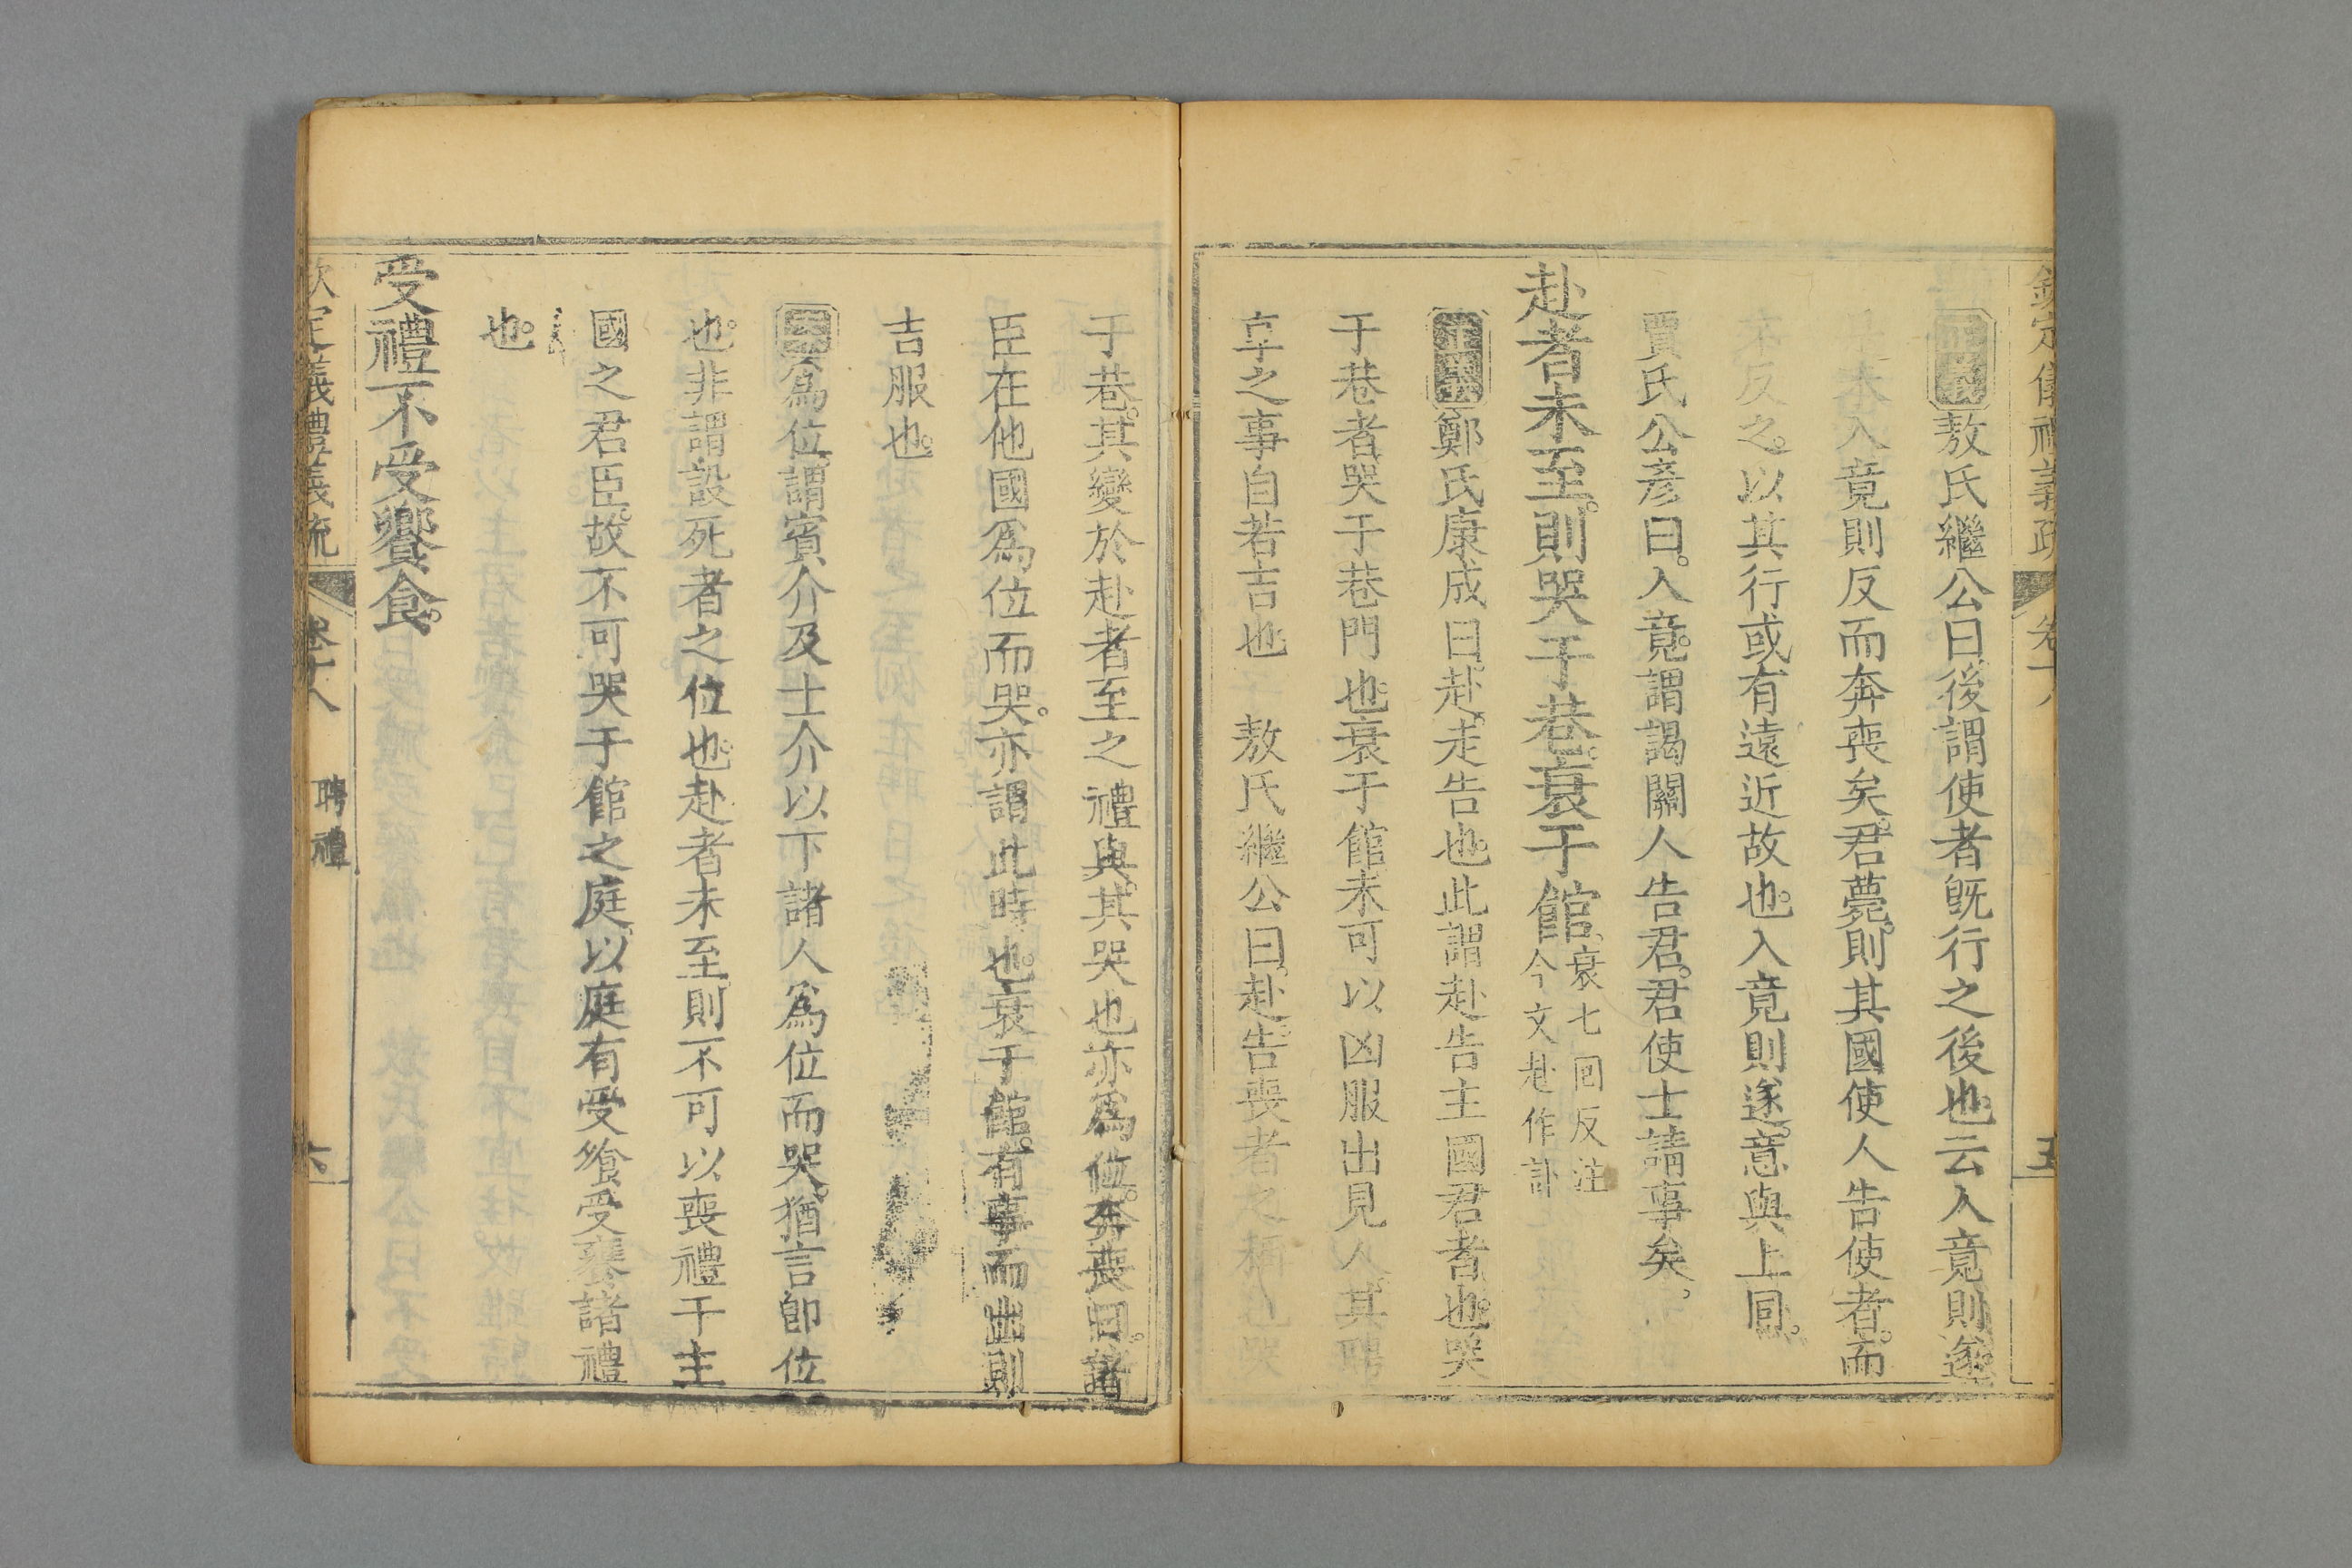 欽定儀禮義疏 卷十八 五
正義敖氏繼公曰後謂使者旣行之後也云入竟則遂
未入竟則反而奔喪矣君薨則其國使人告使者而
不反之以其行或有遠近故也入竟則遂意與上同
賈氏公彦曰入竟謂謁關人告君君使士請事矣
赴者未至則哭于巷衰于館衰七回反注
今文赴作訃
正義鄭氏康成曰赴走告也此謂赴告主國君者也哭
于巷者哭于巷門也衰于館未可以凶服出見人其聘
享之事自若吉也 敖氏繼公曰赴告喪者之稱也哭
于巷其變於赴者至之禮與其哭也亦爲位奔喪曰諸
臣在他國爲位而哭亦謂此時也衰于館有事而出則
吉服也
案爲位謂賓介及士介以下諸人爲位而哭猶言卽位
也非謂設死者之位也赴者未至則不可以喪禮干主
國之君臣故不可哭于館之庭以庭有受飧受饔諸禮
也
受禮不受饗食
欽定儀禮義疏 卷十八 聘禮 六